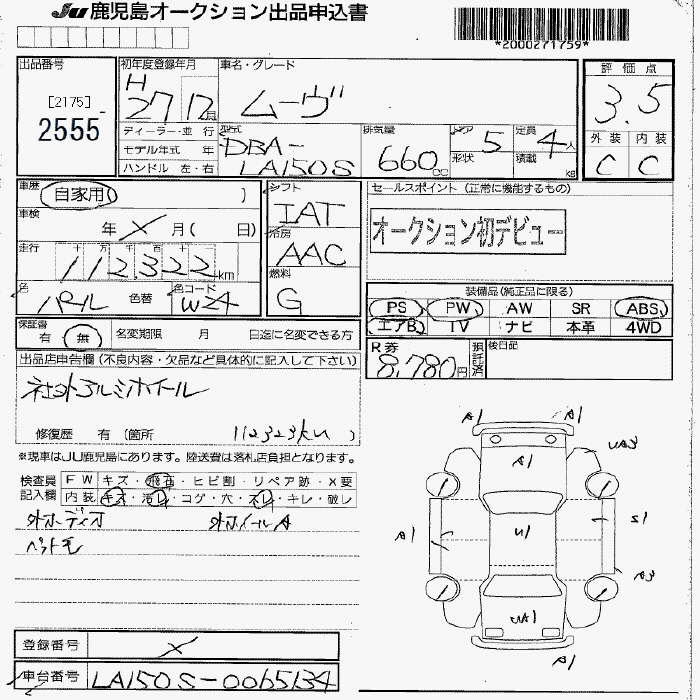 JU 鹿児島オークション出品申込書
*2000271759*
出品番号
[2175]
2555
初年度登録年月
H
27 12月
車名・グレード
ムーヴ
評価点
3.5
外装 内装
C C
ディーラー・並行
モデル年式 年
ハンドル 左・右
型式
DBA-
LA150S
排気量
660cc
ドア 5
形状
定員 4人
積載 KG
車歴 自家用( )
車検
年 X 月( 日)
走行 十 万 千 百 十
112,322km
色 パール 色替
色コード W24
シフト
IAT
冷房
AAC
燃料
G
セールスポイント (正常に機能するもの)
オークション初デビュー
装備品(純正品に限る)
PS PW AW SR ABS
エアB TV ナビ 本革 4WD
保証書
有 無
名変期限 月 日迄に名変できる方
R券
8,780円
預託済
後日品
出品店申告欄 (不良内容・欠品など具体的に記入して下さい)
社外アルミホイール
修復歴 有 (箇所 112323km )
※現車はJU鹿児島にあります。陸送費は落札店負担となります。
検査員
記入欄
FW キズ・飛石・ヒビ割・リペア跡・X要
内装 キズ・汚レ・コゲ・穴・スレ・キレ・破レ
外オーディオ 外ホイールA
ペットモ
登録番号 X
車台番号 LA150S-0065134
A1 A1
A1 UA3
A1 U1 S1
A3
UA1
A1